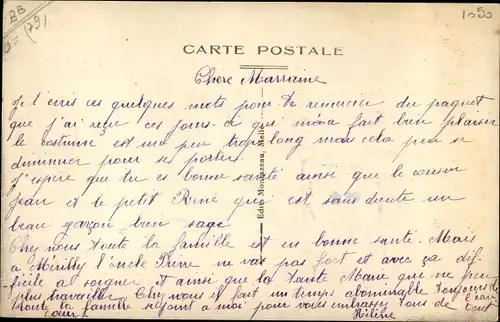 BB
(79)
1050
CARTE POSTALE
Chère Marraine
Je t'écris ces quelques mots pour te remercier du paquet
que j'ai reçu ces jours-ci qui m'a fait bien plaisir
le costume est un peu trop long mais cela peu se
diminuer pour se porter.
J'espère que tu es bonne santé ainsi que le cousin
Jean et le petit René qui est sans doute un
beau garçon bien sage
Chez nous toute la famille est en bonne santé. Mais
à l'oncle Pierre ne vas pas fort et avec ça dif-
ficile a soigner et ainsi que la tante Marie que ne peu
plus travailler. Chez nous il fait un temps abominable toujours de l'eau
toute la famille se joint a moi pour vous embrasser tous de tout
cœur
Edit. Melle